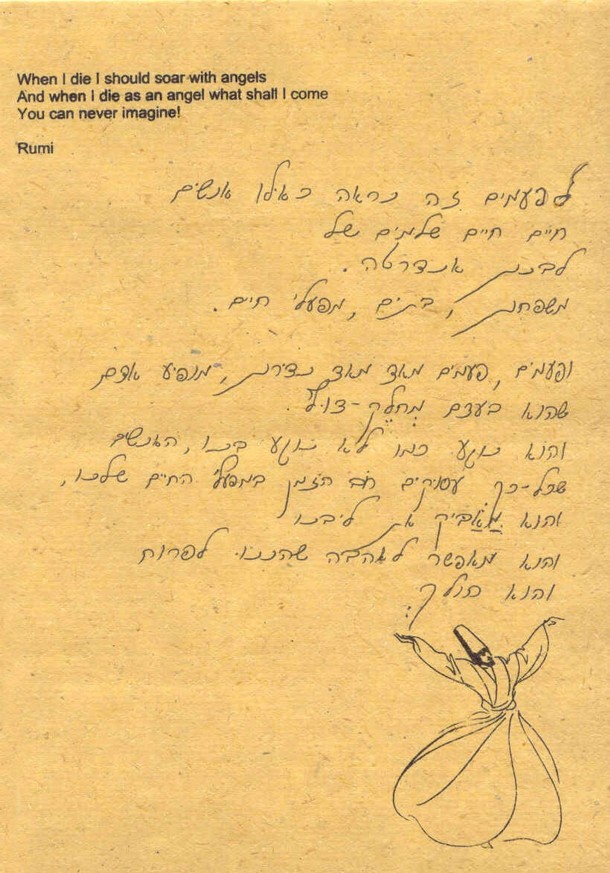 When I die I should soar with angels
And when I die as an angel what shall I come
You can never imagine!
Rumi
לפעמים זה נראה כאילו אנשים
חיים חיים שלמים של
לבנות אנדרטה.
משפחות, בתים, מפעלי חיים.
ופעמים, פעמים מאד מאד נדירות, מופיע אדם
שהוא בעצם
והוא נוגע כמו לא נוגע בנו, האנשים
שכל-כך עסוקים רוב הזמן במפעלי החיים שלנו,
והוא מאביק את ליבנו
והוא מאפשר לאהבה לפרוח
והוא חולף.